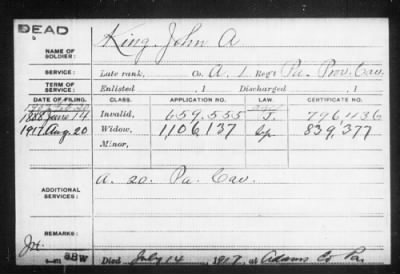 DEAD
NAME OF SOLDIER: King, John A
SERVICE: Late rank, Co. A, 1 Reg't Pa. Prov. Cav.
TERM OF SERVICE: Enlisted , 1 Discharged , 1
DATE OF FILING. CLASS. APPLICATION NO. LAW. CERTIFICATE NO.
1888 June 14 Invalid, 659,555 J. 796,436
1917 Aug. 20 Widow, 1,106,137 839,377
Minor,
ADDITIONAL SERVICES: A. 20. Pa. Cav.
REMARKS:
Died July 14, 1917, at Adams Co Pa.